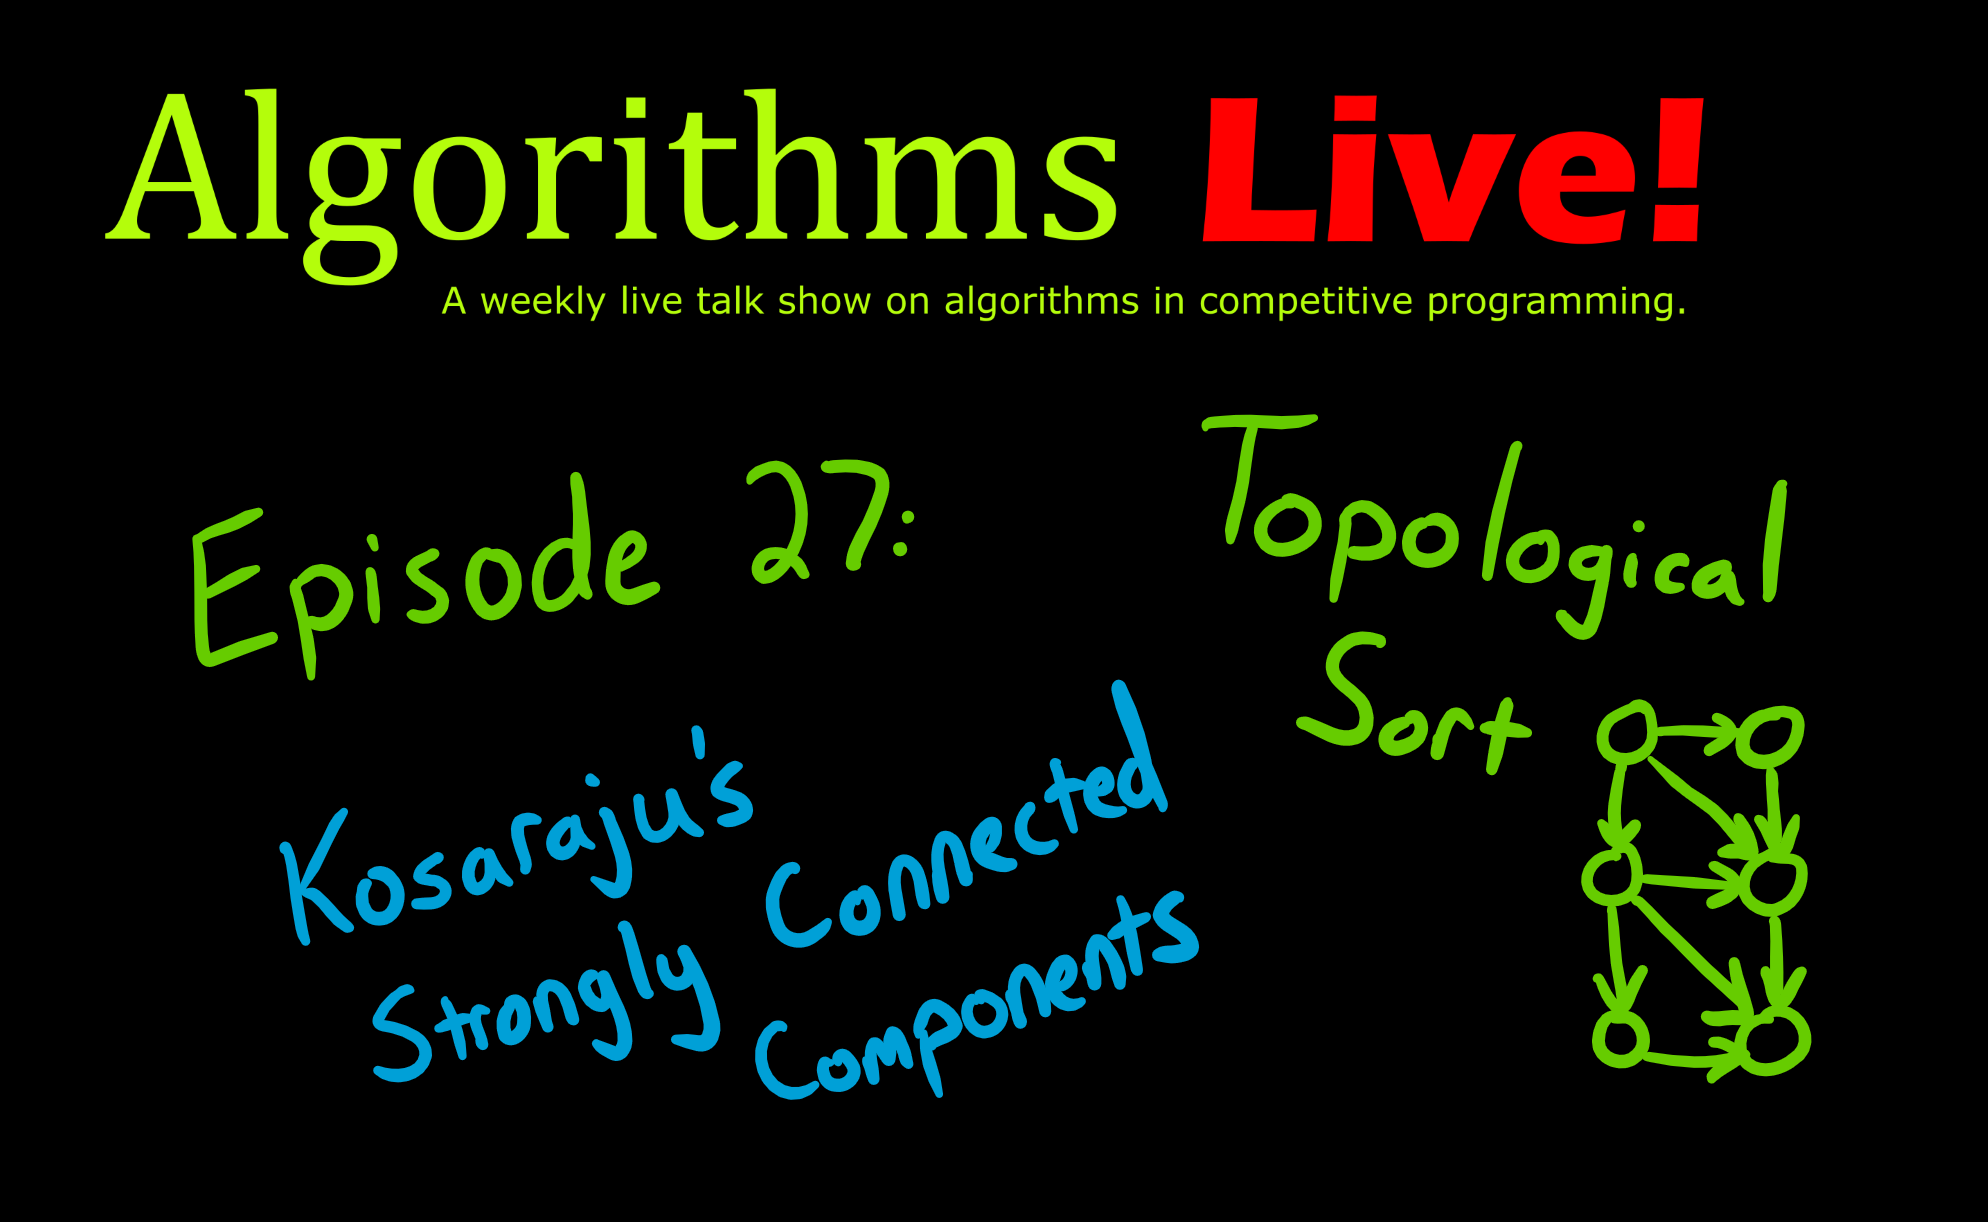 Algorithms Live!
A weekly live talk show on algorithms in competitive programming.
Episode 27:
Topological
Sort
Kosaraju's
Strongly
Connected
Components